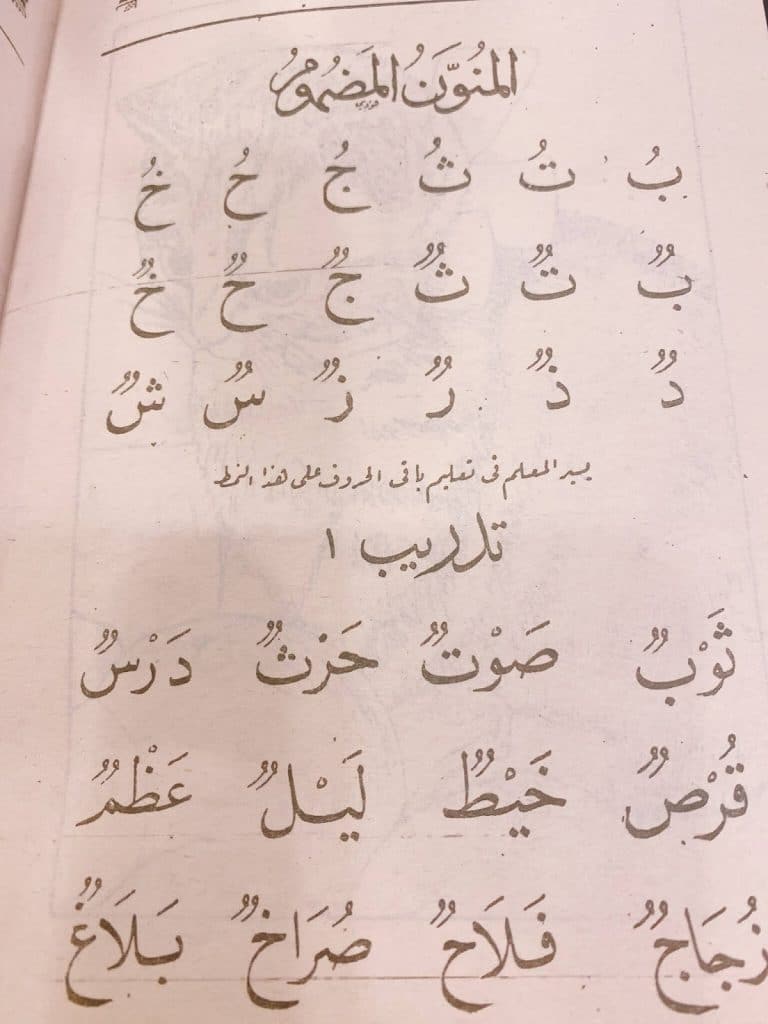 المُنَوَّنُ المَضْمُومُ
بُ تُ ثُ جُ حُ خُ
بٌ تٌ ثٌ جٌ حٌ خٌ
دٌ ذٌ رٌ زٌ سٌ شٌ
يسير المعلم في تعليم باقى الحروف على هذا النمط
تدريب ١
ثَوْبٌ صَوْتٌ حَرْثٌ دَرْسٌ
قُرْصٌ خَيْطٌ لَيْلٌ عَظْمٌ
زُجَاجٌ فَلَاحٌ صُرَاخٌ بَلَاغٌ